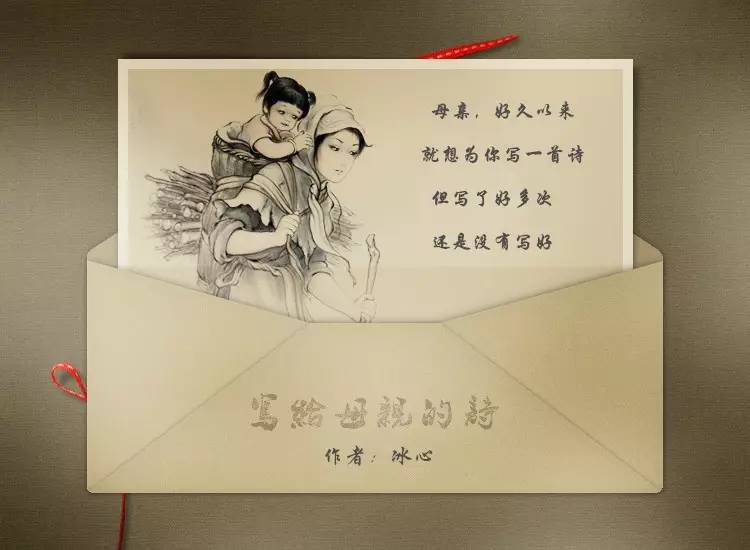 母亲，好久以来
就想为你写一首诗
但写了好多次
还是没有写好
寫給母親的詩
作者：冰心